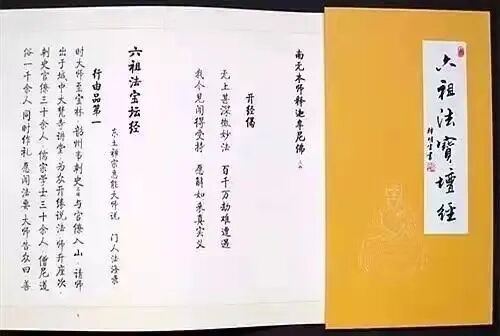 六祖法寶壇經
南无本师释迦牟尼佛
开经偈
无上甚深微妙法 百千万劫难遭遇
我今见闻得受持 愿解如来真实义
六祖法宝坛经
东土禅宗惠能大师说 门人法海录
行由品第一
时大师至宝林 韶州韦刺史与官僚入山 请师
出于城中大梵寺讲堂 为众开缘说法 师升座次
刺史官僚三十余人 儒宗学士三十余人 僧尼道
俗一千余人 同时作礼 愿闻法要 大师告众曰 善